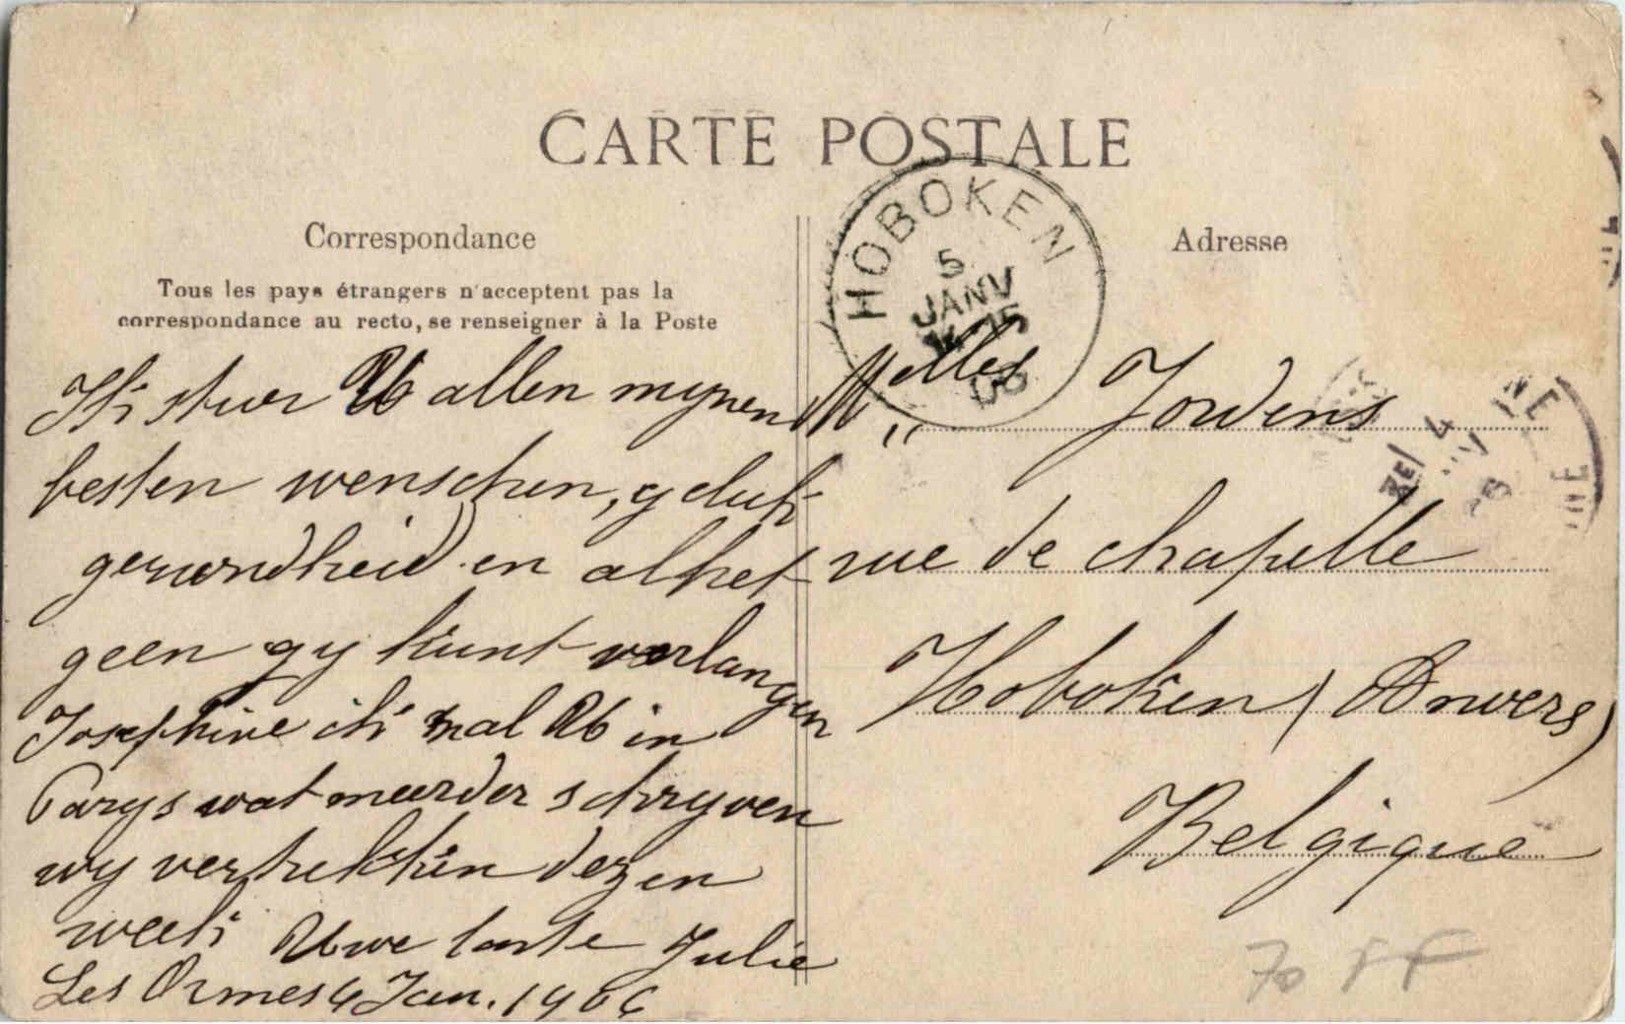 CARTE POSTALE
Correspondance
Tous les pays étrangers n'acceptent pas la
correspondance au recto, se renseigner à la Poste
Ik stuur U allen mynen
besten wenschen, geluk
gezondheid en al het
geen gy kunt verlangen
Josephine ik zal U in
Parys wat meerder schryven
wy vertrekken dezen
week Uwe tante Julie
Les Ormes 4 Jan. 1906
Adresse
HOBOKEN
5
JANV
06
Melles Jordens
rue de chapelle
Hoboken (Anvers)
Belgique
70 FF